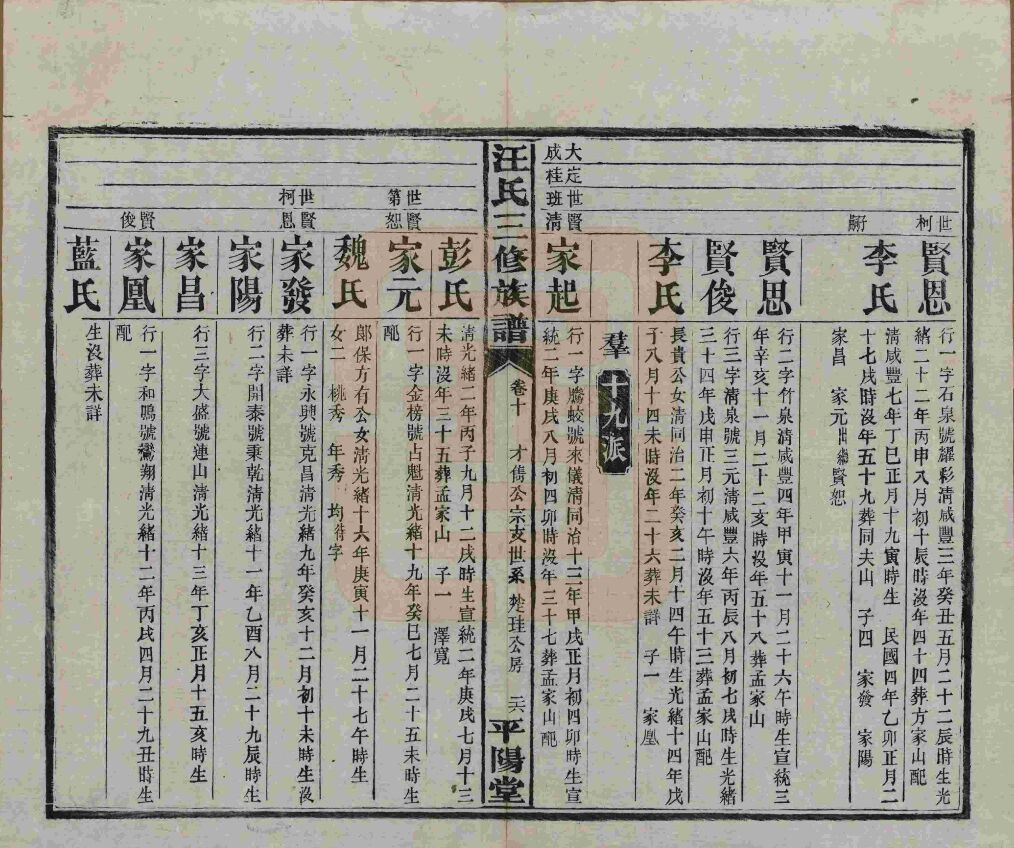 世柯
賢恩
行一字石泉號耀彩清咸豐三年癸丑五月二十二辰時生光
緒二十二年丙申八月初十辰時沒年四十四葬方家山配
李氏
清咸豐七年丁巳正月十九寅時生 民國四年乙卯正月二
十七戌時沒年五十九葬同夫山 子四 家發 家陽
家昌 家元出繼賢恕
賢思
行二字竹泉清咸豐四年甲寅十一月二十六午時生宣統三
年辛亥十一月二十二亥時沒年五十八葬孟家山
賢俊
行三字清泉號三元清咸豐六年丙辰八月初七戌時生光緒
三十四年戊申正月初十午時沒年五十三葬孟家山配
李氏
長貴公女清同治二年癸亥二月十四午時生光緒十四年戊
子八月十四未時沒年二十六葬未詳 子一 家凰
羣
十九派
大定世賢
成桂班清
家起
行一字騰蛟號來儀清同治十三年甲戌正月初四卯時生宣
統二年庚戌八月初四卯時沒年三十七葬孟家山配
汪氏三修族譜
卷十 才雋公宗支世系 楚珪公房 二六
平陽堂
彭氏
清光緒二年丙子九月十二戌時生宣統二年庚戌七月十三
未時沒年三十五葬孟家山 子一 澤寬
世賢
第恕
家元
行一字金榜號占魁清光緒十九年癸巳七月二十五未時生
配
魏氏
鄖保方有公女清光緒十六年庚寅十一月二十七午時生
女二 桃秀 年秀 均待字
世賢
柯恩
家發
行一字永興號克昌清光緒九年癸亥十二月初十未時生沒
葬未詳
家陽
行二字開泰號秉乾清光緒十一年乙酉八月二十九辰時生
家昌
行三字大盛號連山清光緒十三年丁亥正月十五亥時生
賢俊
家凰
行一字和鳴號鸞翔清光緒十二年丙戌四月二十九丑時生
配
藍氏
生沒葬未詳